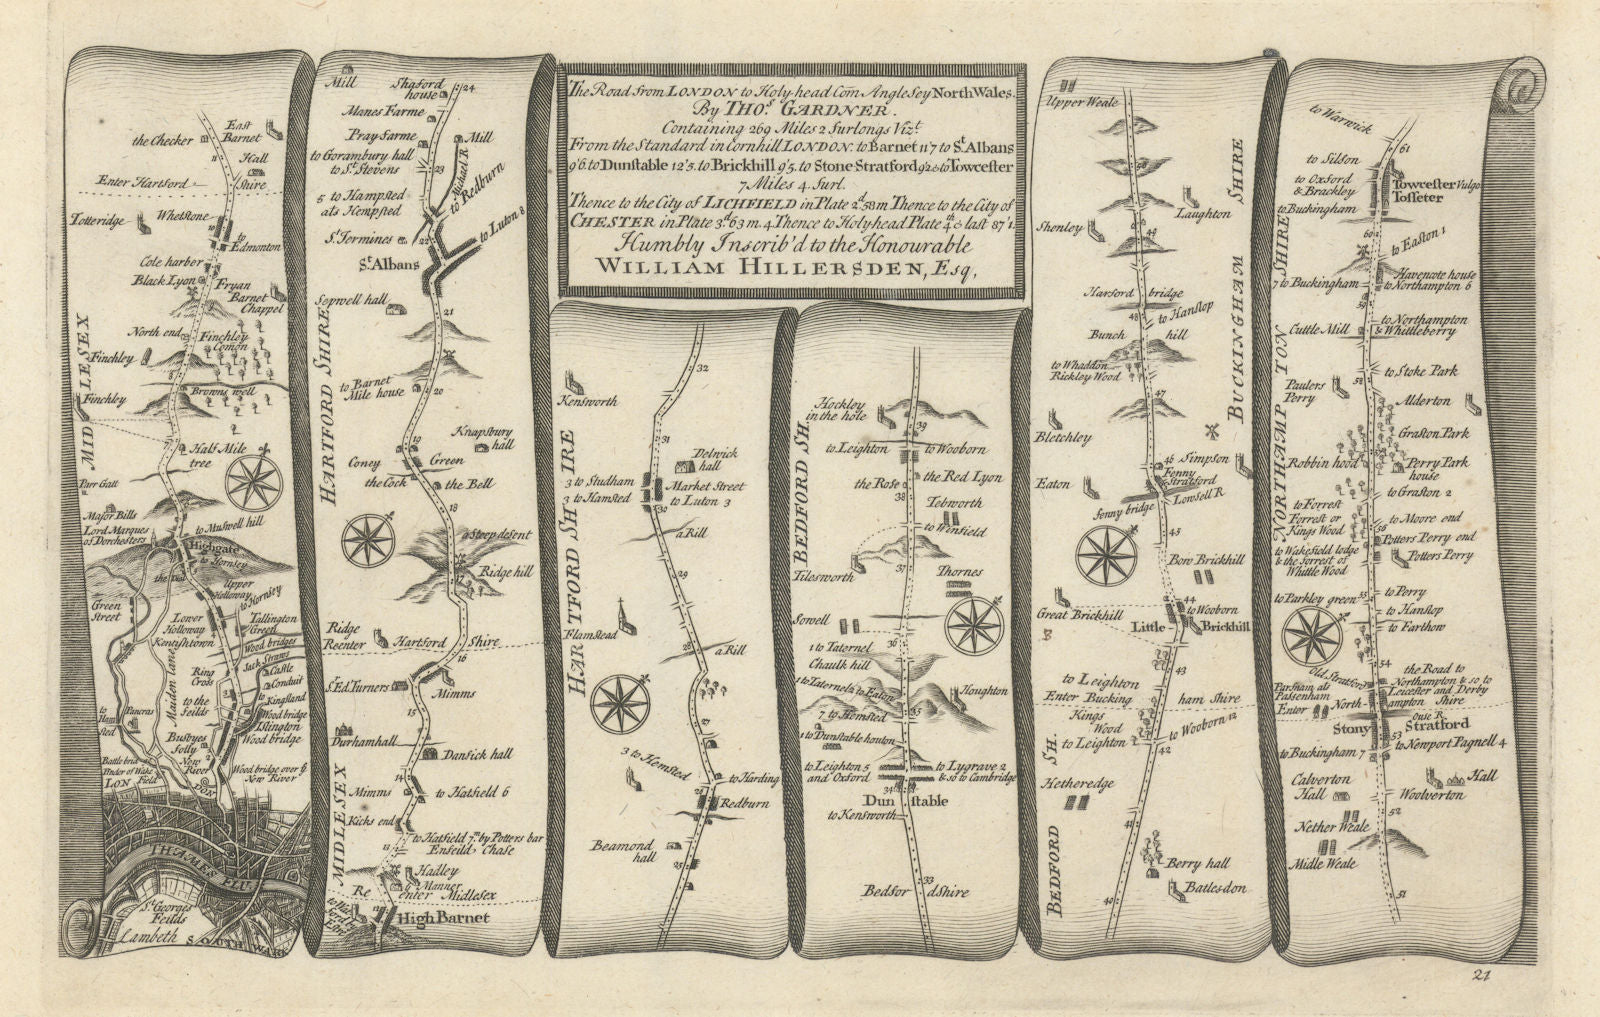 The Road from LONDON to Holy-head Com Anglesey North Wales.
By THOs. GARDNER.
Containing 269 Miles 2 Furlongs Vizt.
From the Standard in Cornhill LONDON. to Barnet 11'7 to St Albans
9'6. to Dunstable 12'5. to Brickhill 9'5. to Stone-Stratford 9'2. to Towcester
7 Miles 4 Furl.
Thence to the City of LICHFIELD in Plate 2d. 58 m Thence to the City of
CHESTER in Plate 3d. 63 m. 4 Thence to Holyhead Plate 4th & last 87'1.
Humbly Inscrib'd to the Honourable
WILLIAM HILLERSDEN, Esq,
East
Barnet
the Checker
11
Hall
Enter Hartford
Shire
Totteridge
Whetstone
10
to
Edmonton
Cole harbor
Black Lyon
Fryan
Barnet
Chappel
North end
Finchley
Comon
Finchley
8
Browns well
MIDLESEX
Finchley
Half Mile
tree
Parr Gatt
Major Bills
Lord Marques
of Dorchesters
to Muswell hill
Highgate
to Hornsey
the Dial
Upper
Holloway
to Hornsey
Green
Street
Lower
Holloway
Tallington
Green
Kentishtown
Wood bridges
Jack Straws
Castle
Ring
Cross
Conduit
Maiden lane
to
Kingsland
to the
feilds
Wood bridge
Islington
Wood bridge
to
Hamsted
Pancras
Busbyes
folly
New
River
Battle brid
Wood bridge over ye
New River
LONDON
THAMES FLU.
St Georges
Feilds
Lambeth
SOUTHWARK
Mill
Shaford
house
24
Manes Farme
Pray farme
Mill
to Gorambury hall
to St Stevens
23
Michael R.
to Redburn
5 to Hampsted
als Hempsted
to Luton 8
St Jermines
22
St Albans
Sepwell hall
21
HARTFORD SHIRE
to Barnet
Mile house
20
19
Knapsbury
hall
Coney Green
the Cock
the Bell
18
a Steep desent
17
Ridge hill
Ridge
Reenter
Hartford Shire
16
St Ed. Turners
Mimms
15
Durhamhall
Dansick hall
14
MIDLESEX
Mimms
to Hatfield 6
Kicks end
to Hatfield 7m. by Potters bar
Enfeild Chase
13
Hadley
Manner
Re enter Midlesex
12
High Barnet
32
Kensworth
31
Delwick
hall
3 to Studham
Market Street
3 to Hamsted
to Luton 3
30
a Rill
HARTFORD SHIRE
29
Flamstead
28
a Rill
27
3 to Hemsted
to Harding
26
Redburn
Beamond
hall
25
Hockley
in the hole
39
to Leighton
to Wooborn
the Red Lyon
the Rose
38
Tebworth
to Winfield
BEDFORD SH.
Tilesworth
37
Thornes
Sowell
36
1 to Taternel
Chaulk hill
1 to Taternel 2 to Eaton
Houghton
35
7 to Hemsted
1 to Dunstable houton
to Leighton 5
and Oxford
to Lygrave 2
& so to Cambridge
34
Dunstable
to Kensworth
33
Bedfordshire
Upper Weale
Laughton
Shenley
49
Harford bridge
48
to Hanslop
Bunch hill
to Whaddon
Rickley Wood
47
BUCKINGHAM SHIRE
Bletchley
46
Simpson
Fenny
Stratford
Eaton
Lowsell R.
fenny bridge
Bow Brickhill
44
Great Brickhill
to Wooborn
Little Brickhill
43
to Leighton
Enter Buckingham Shire
Kings
Wood
to Leighton
to Wooborn 12
42
Hetheredge
BEDFORD SH.
41
Berry hall
Batlesdon
40
to Warwick
61
to Silson
to Oxford
& Brackley
Towcester Vulgo
Tosseter
to Buckingham
60
to Easton 1
Havencote house
7 to Buckingham
to Northampton 6
59
Cuttle Mill
to Northampton
& Whittleberry
to Stoke Park
58
Paulers
Perry
Alderton
Grafton Park
NORTHAMPTON SHIRE
Robbin hood
Perry Park
house
to Grafton 2
to Forrest
Forrest or
Kings Wood
to Moore end
56
Potters Perry end
to Wakefield lodge
& the forrest of
Whittle Wood
Potters Perry
to Parkley green
55
to Perry
to Hanslop
to Farthow
54
Old Stratford
the Road to
Northampton & so to
Leicester and Derby
Pasham als
Passenham
Enter Northampton Shire
Ouse R.
Stony Stratford
53
to Newport Pagnell 4
to Buckingham 7
Calverton
Hall
Hall
Woolverton
52
Nether Weale
Midle Weale
51
21